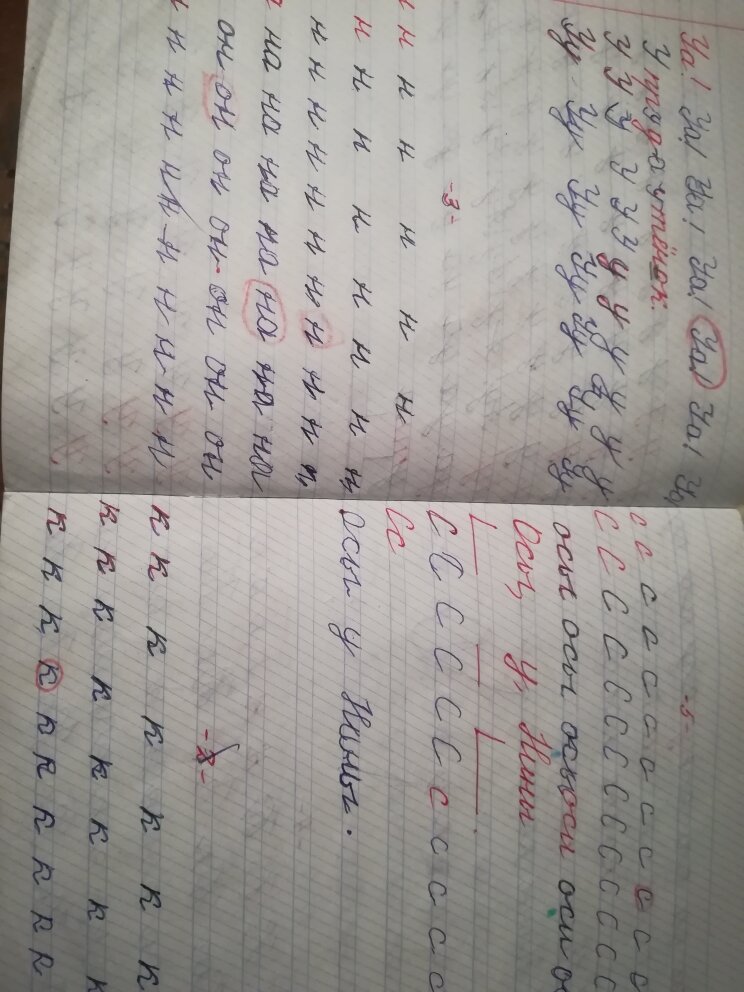 Уа! Уа! Уа! Уа! Уа! Уа! У
У пруда утёнок.
У У У У У У у у у у у у
Уу Уу Уу Уу Уу Уу Уу Уу
-3-
н н н н н н
н н н н н н н н
н н н н н н н н н н н
на на на на на на на
он он он он он он он
н н н н н н н н н н н н
-5-
с с с с с с с с с с с с
С С С С С С С С С С С С
осы осы осы осы осы о
Осы у Нины
С С С С С С с с с с с
Сс
Осы у Нины.
-8-
к к к к к к к
к к к к к к к к
к к к к к к к к к к